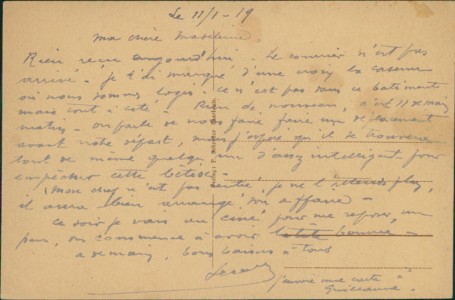 Le 11/1-19
ma chère Madeleine
Rien reçu aujourd'hui - Le courrier n'est pas
arrivé - je t'ai marqué d'une croix la caserne
où nous sommes logés - ce n'est pas dans ce bâtiment
mais tout à côté - Rien de nouveau,
matin - on parle de nous faire faire un
avant notre départ, mais j'espère qu'il se trouvera
tout de même quelqu'un d'assez intelligent pour
empêcher cette bêtise -
Mon chef n'est pas rentré, je ne l'attends plus,
il assure bien arranger son affaire -
ce soir je vais au ciné pour me reposer, un
peu, on commence à avoir
a demain, bons baisers à tous
j'envoie une carte à
Guillaume -